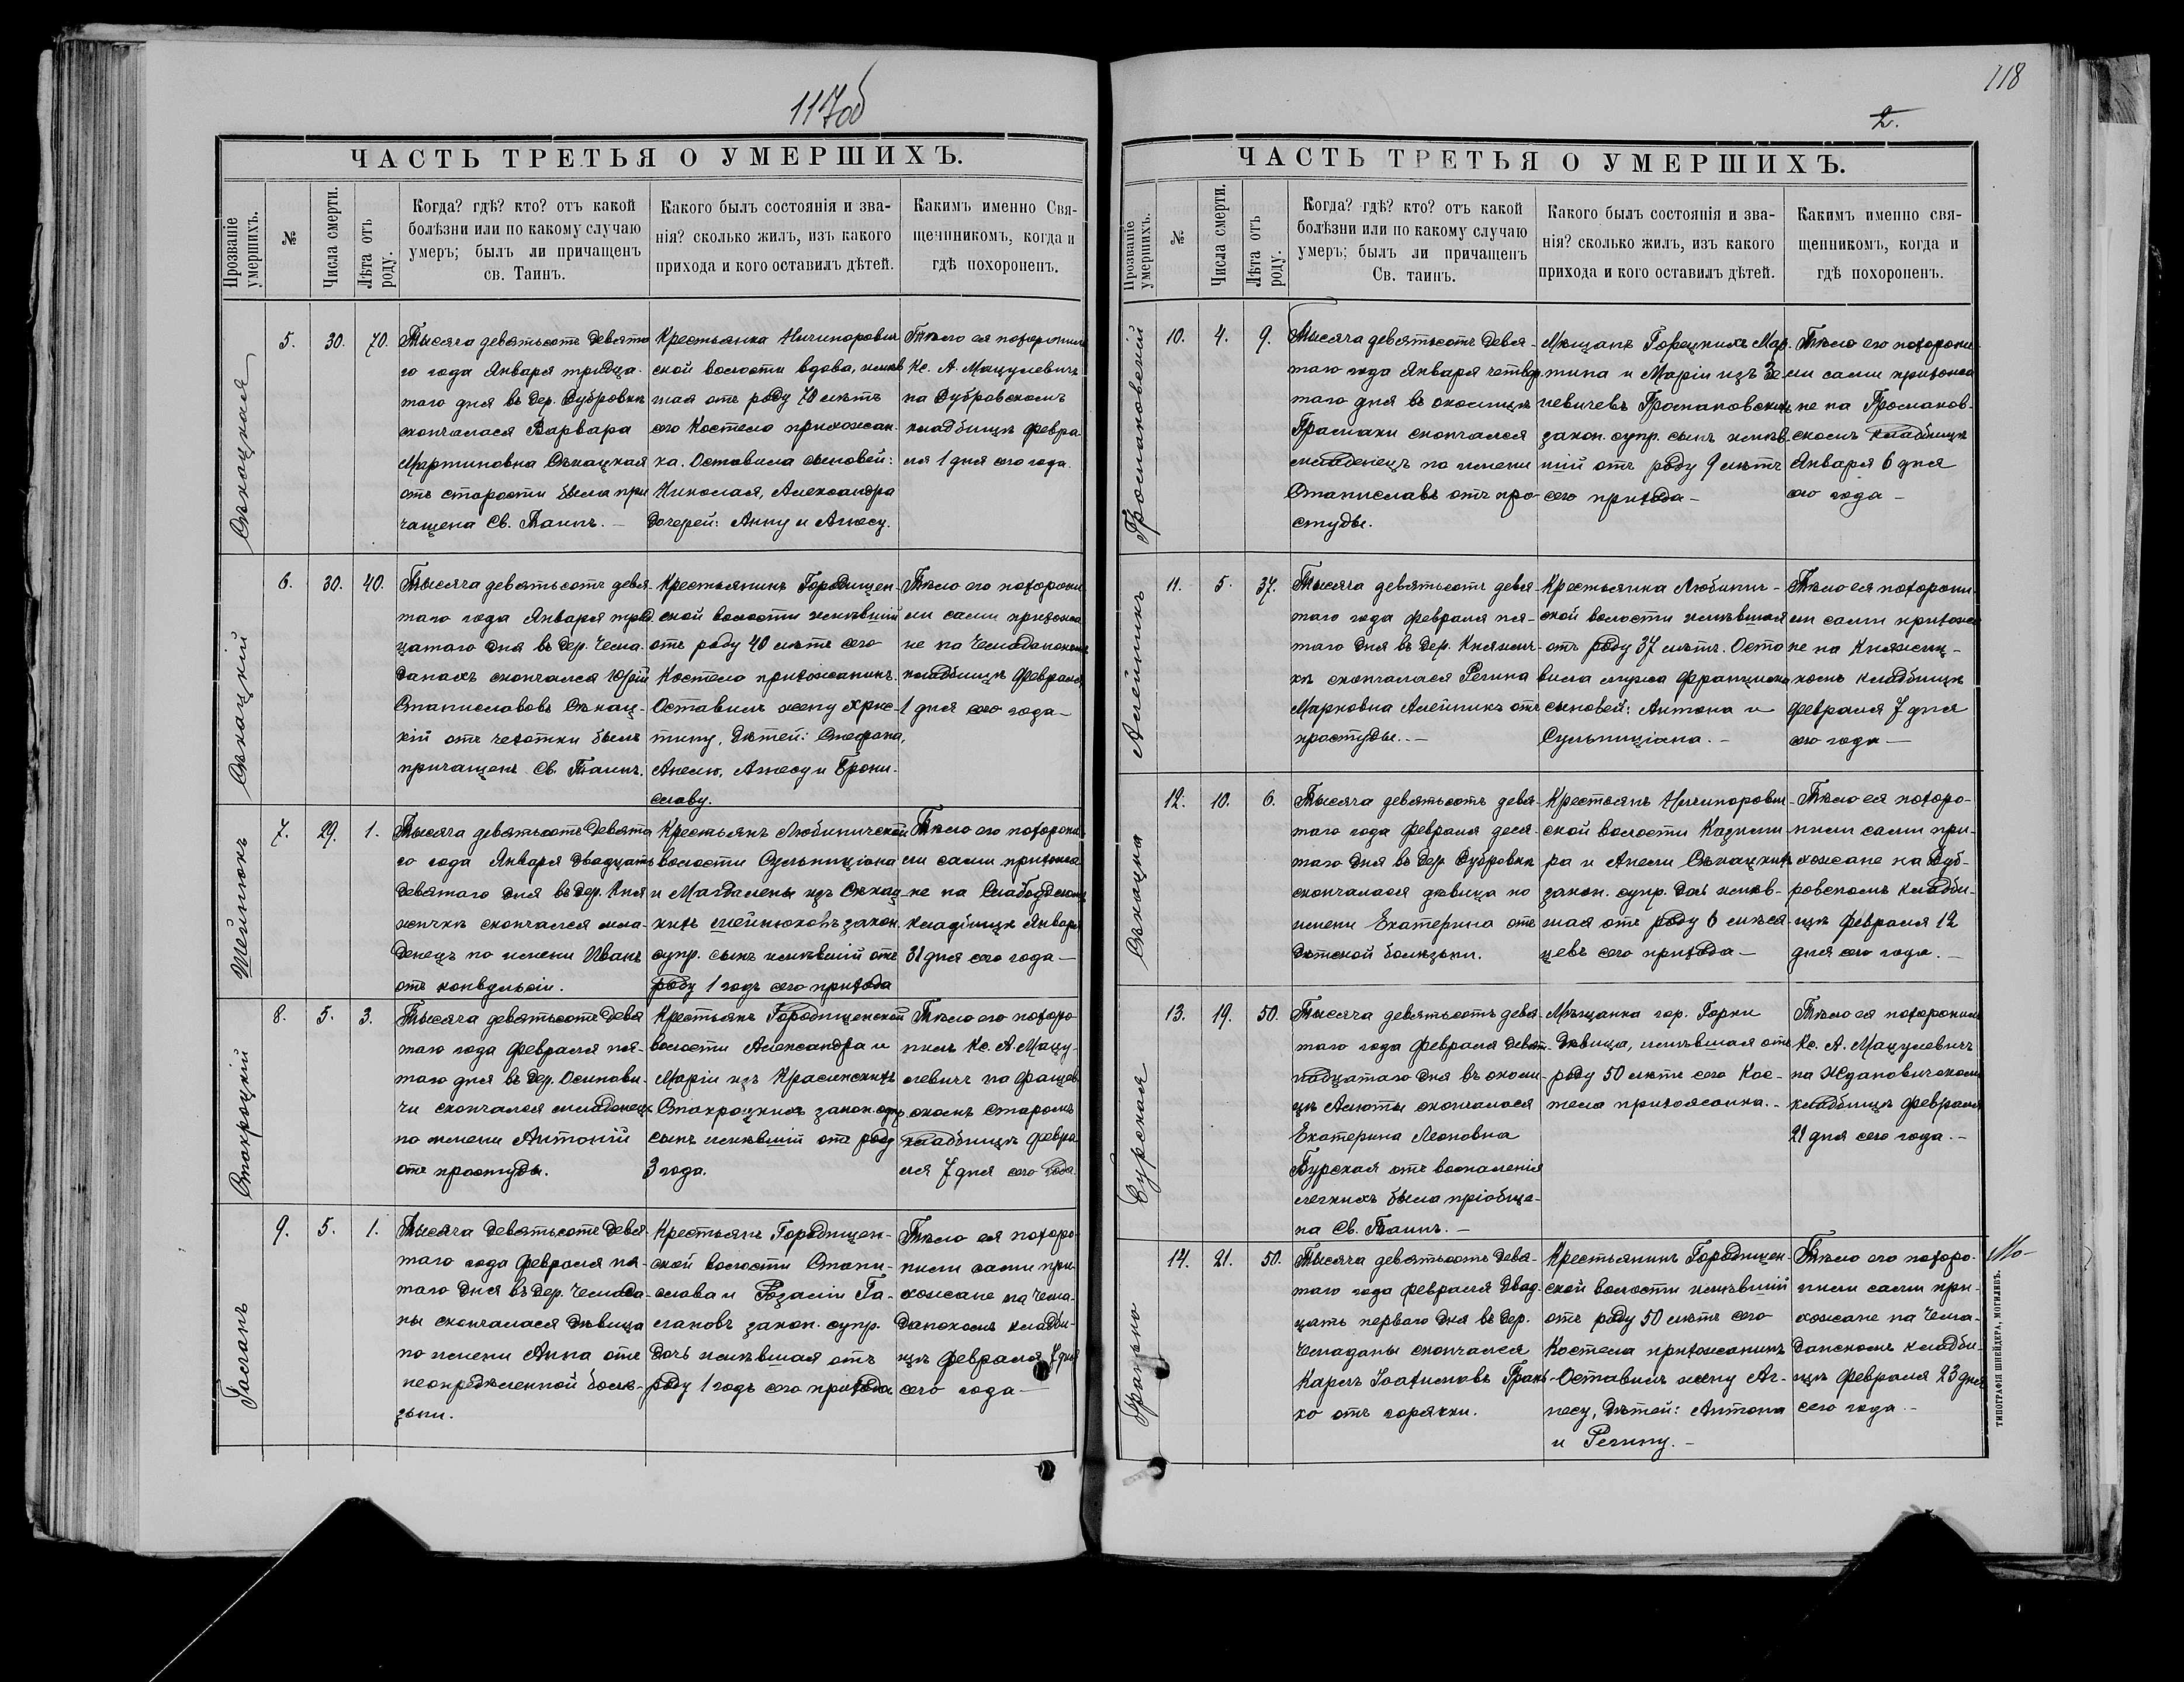 117об
ЧАСТЬ ТРЕТЬЯ О УМЕРШИХЪ.
Прозваніе умершихъ.
№
Числа смерти.
Лѣта отъ роду.
Когда? гдѣ? кто? отъ какой
болѣзни или по какому случаю
умеръ; былъ ли причащенъ
св. Таинъ.
Какого былъ состоянія и зва-
нія? сколько жилъ, изъ какого
прихода и кого оставилъ дѣтей.
Каким именно Свя-
щенникомъ, когда и
гдѣ похороненъ.
Сѣкацкая
5.
30.
70.
Тысяча девятьсотъ девята
го года Января тридца-
таго дня въ дер. Дубровкѣ
скончалася Варвара
Мартиновна Сѣкацкая
отъ старости была при
чащена Св. Таинъ. —
Крестьянка Ничипорович
ской волости вдова, жив
шая отъ роду 70 лѣтъ
сего Костела прихожан-
ка. Оставила сыновей:
Николая, Александра
дочерей: Анну и Агнесу.
Тѣло ея похоронилъ
Кс. А. Мацулевичъ
на Дубровскомъ
кладбищѣ Февра
ля 1 дня сего года.
Сѣкацкій
6.
30.
40.
Тысяча девятьсотъ девя-
таго года Января трид-
цатаго дня въ дер. Чема-
данахъ скончался Юрій
Станиславовъ Сѣкац-
кій отъ чехотки былъ
причащенъ Св. Таинъ.
Крестьянинъ Городищен-
ской волости жившій
отъ роду 40 лѣтъ сего
Костела прихожанинъ.
Оставилъ жену Хрис-
тину, дѣтей: Стефана,
Анелю, Агнесу и Брони-
славу.
Тѣло его похорони
ли сами прихожа
не на Чемаданскомъ
кладбищѣ Февраля
1 дня сего года—
Шейнюкъ
7.
29.
1.
Тысяча девятьсотъ девята
го года Января двадцать
девятаго дня въ дер. Кня
жичкѣ скончался мла
денецъ по имени Иванъ
отъ конвульсіи.
Крестьянъ Любиничской
волости Сульпиціана
и Магдалены изъ Сѣкац-
кихъ Шейнюковъ закон.
супр. сынъ жившій отъ
роду 1 годъ сего прихода
Тѣло его похорони
ли сами прихожа
не на Слабодскомъ
кладбищѣ Января
31 дня сего года—
Стахроцкій
8.
5.
3.
Тысяча девятьсотъ девя
таго года Февраля пя-
таго дня въ дер. Осинови-
чи скончался младенецъ
по имени Антоній
отъ простуды.
Крестьянъ Городищенской
волости Александра и
Маріи изъ Красинскихъ
Стахроцкихъ закон. супр
сынъ жившій отъ роду
3 года.
Тѣло его похоро
нилъ Кс. А. Мацу-
левичъ на Фащев
скомъ Старомъ
кладбищѣ Февра
ля 7 дня сего года
Гасганъ
9.
5.
1.
Тысяча девятьсотъ девя-
таго года Февраля пя-
таго дня въ дер. Чемода-
ны скончалася дѣвица
по имени Анна отъ
неопредѣленной болѣ-
зни.
Крестьянъ Городищен-
ской волости Стани-
слова и Розаліи Га-
сгановъ закон. супр.
дочь жившая отъ
роду 1 годъ сего прихода
Тѣло ея похоро-
нили сами при
хожане на Чема-
данскомъ кладби-
щѣ Февраля 7 дня
сего года—
118
2.
ЧАСТЬ ТРЕТЬЯ О УМЕРШИХЪ.
Прозваніе умершихъ.
№
Числа смерти.
Лѣта отъ роду.
Когда? гдѣ? кто? отъ какой
болѣзни или по какому случаю
умеръ; былъ ли причащенъ
Св. таинъ.
Какого былъ состоянія и зва-
нія? сколько жилъ, изъ какого
прихода и кого оставилъ дѣтей.
Каким именно свя-
щенникомъ, когда и
гдѣ похороненъ.
Громаковскій
10.
4.
9.
Тысяча девятьсотъ девя-
таго года Января четвер
таго дня въ околицѣ
Громаки скончался
младенецъ по имени
Станиславъ отъ про-
студы.
Мѣщанъ Горецкихъ Мар-
тина и Маріи изъ Зе-
невичевъ Громаковскихъ
закон. супр. сынъ жив
шій отъ роду 9 лѣтъ
сего прихода—
Тѣло его похорони
ли сами прихожа
не на Громаков-
скомъ кладбищѣ
Января 6 дня
сего года—
Алейникъ
11.
5.
37.
Тысяча девятьсотъ девя-
таго года Февраля пя-
таго дня въ дер. Княжич-
кѣ скончалася Регина
Марковна Алейникъ отъ
простуды.—
Крестьянка Любинич-
ской волости жившая
отъ роду 37 лѣтъ. Оста
вила мужа Франциска
сыновей: Антона и
Сульпиціана.—
Тѣло ея похорони
ли сами прихожа
не на Княжиц-
комъ кладбищѣ
Февраля 7 дня
сего года—
Сѣкацка
12.
10.
6.
Тысяча девятьсотъ девя-
таго года Февраля деся-
таго дня въ дер Дубровкѣ
скончалася дѣвица по
имени Екатерина отъ
дѣтской болѣзни.
Крестьянъ Ничипорович-
ской волости Казими-
ра и Анели Сѣкацкихъ
закон. супр. дочь жив-
шая отъ роду 6 мѣся-
цевъ сего прихода—
Тѣло ея похоро-
нили сами при-
хожане на Дуб-
ровскомъ кладби-
щѣ Февраля 12
дня сего года.—
Бурская
13.
19.
50.
Тысяча девятьсотъ девя-
таго года Февраля девят-
надцатаго дня въ околи-
цѣ Алюты скончалася
Екатерина Леоновна
Бурская отъ воспаленія
легкихъ была пріобще-
на Св. Таинъ.—
Мѣщанка гор. Горки
дѣвица, жившая отъ
роду 50 лѣтъ сего Кос-
тела прихожанка.—
Тѣло ея похоронилъ
Кс. А. Мацулевичъ
на Ждановичскомъ
кладбищѣ Февраля
21 дня сего года.—
Гранько
14.
21.
50.
Тысяча девятьсотъ девя-
таго года Февраля двад-
цать перваго дня въ дер.
Чемаданы скончался
Карлъ Іоахимовъ Грань-
ко отъ горячки.
Крестьянинъ Городищен-
ской волости жившій
отъ роду 50 лѣтъ сего
Костела прихожанинъ
Оставилъ жену Аг-
несу, дѣтей: Антона
и Регину.—
Тѣло его похоро-
нили сами при-
хожане на Чема-
данскомъ кладби-
щѣ Февраля 23 дня
сего года.—
Мо-
ТИПОГРАФІЯ ШНЕЙДЕРА, МОГИЛЕВЪ.